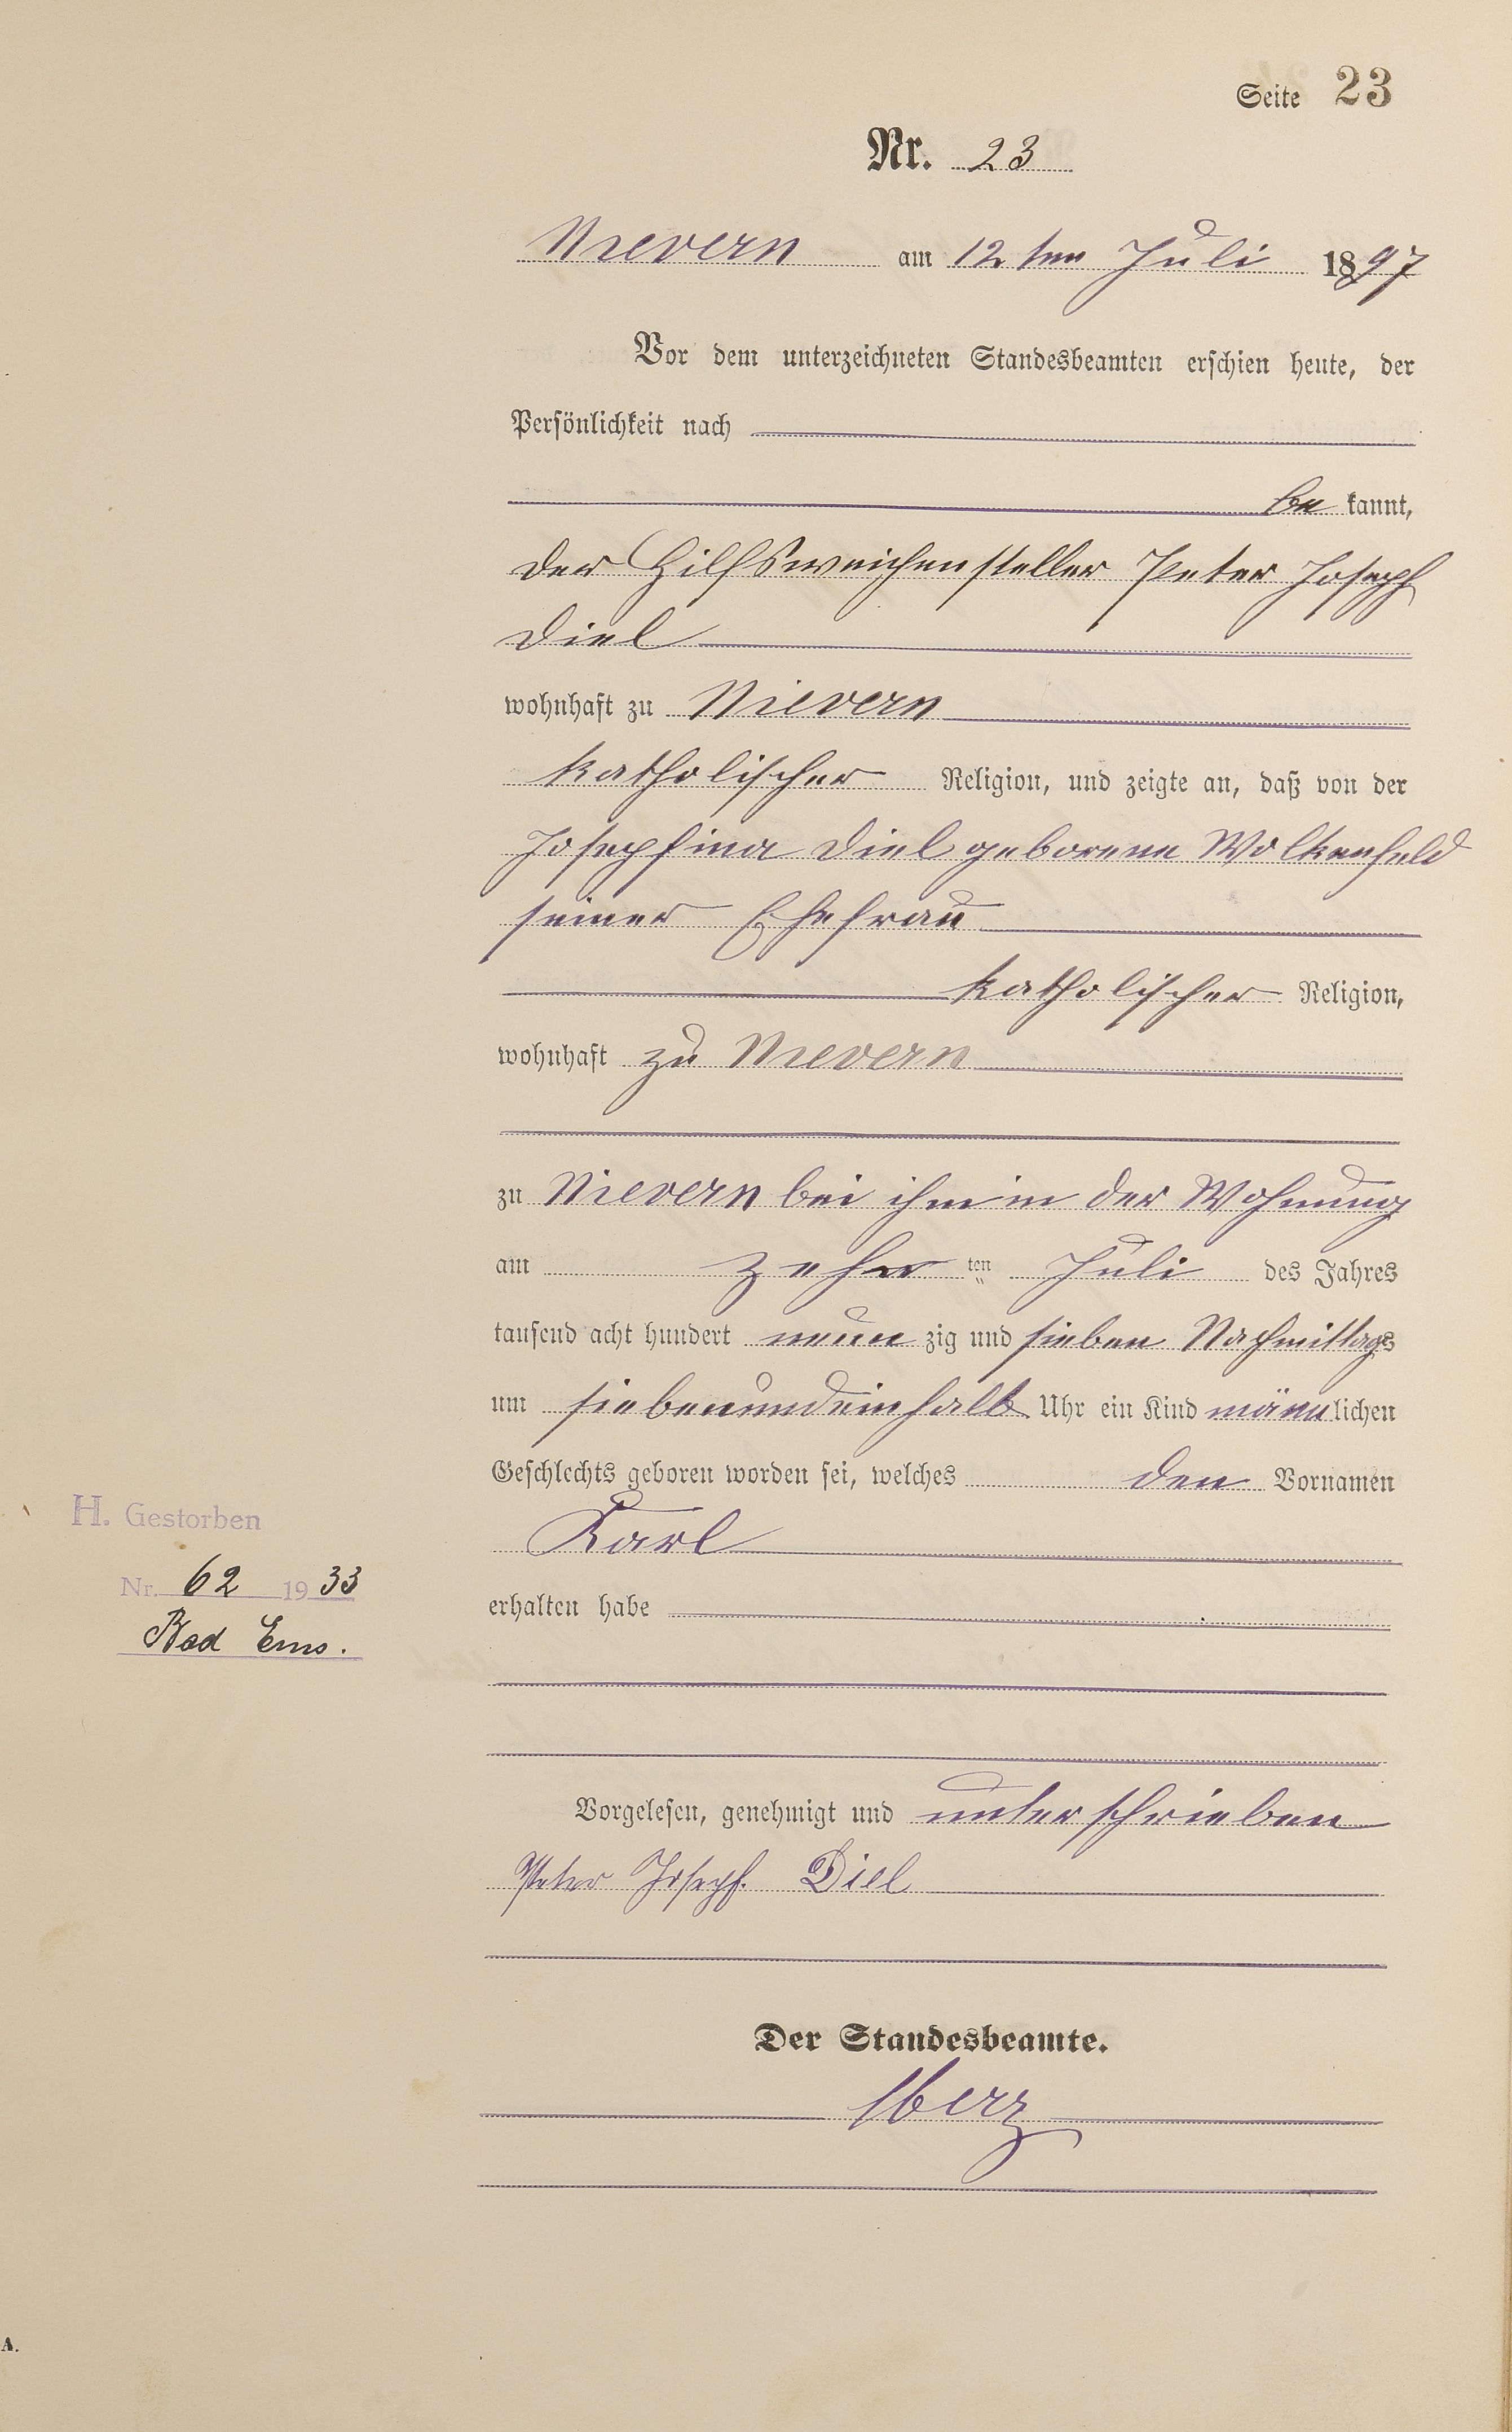 Seite 23
Nr. 23
Nievern am 12ten Juli 1897
Vor dem unterzeichneten Standesbeamten erschien heute, der
Persönlichkeit nach
be kannt,
der Hilfsweichensteller Peter Joseph
Diel
wohnhaft zu Nievern
katholischer Religion, und zeigte an, daß von der
Josephina Diel geborene Wolkenfeld
seiner Ehefrau
katholischer Religion,
wohnhaft zu Nievern
zu Nievern bei ihm in der Wohnung
am zehn ten Juli des Jahres
tausend acht hundert neun zig und sieben Nachmittags
um siebenundeinhalb Uhr ein Kind männlichen
Geschlechts geboren worden sei, welches den Vornamen
Karl
erhalten habe
H. Gestorben
Nr. 62 1933
Bad Ems.
Vorgelesen, genehmigt und unterschrieben
Peter Joseph. Diel
Der Standesbeamte.
A.